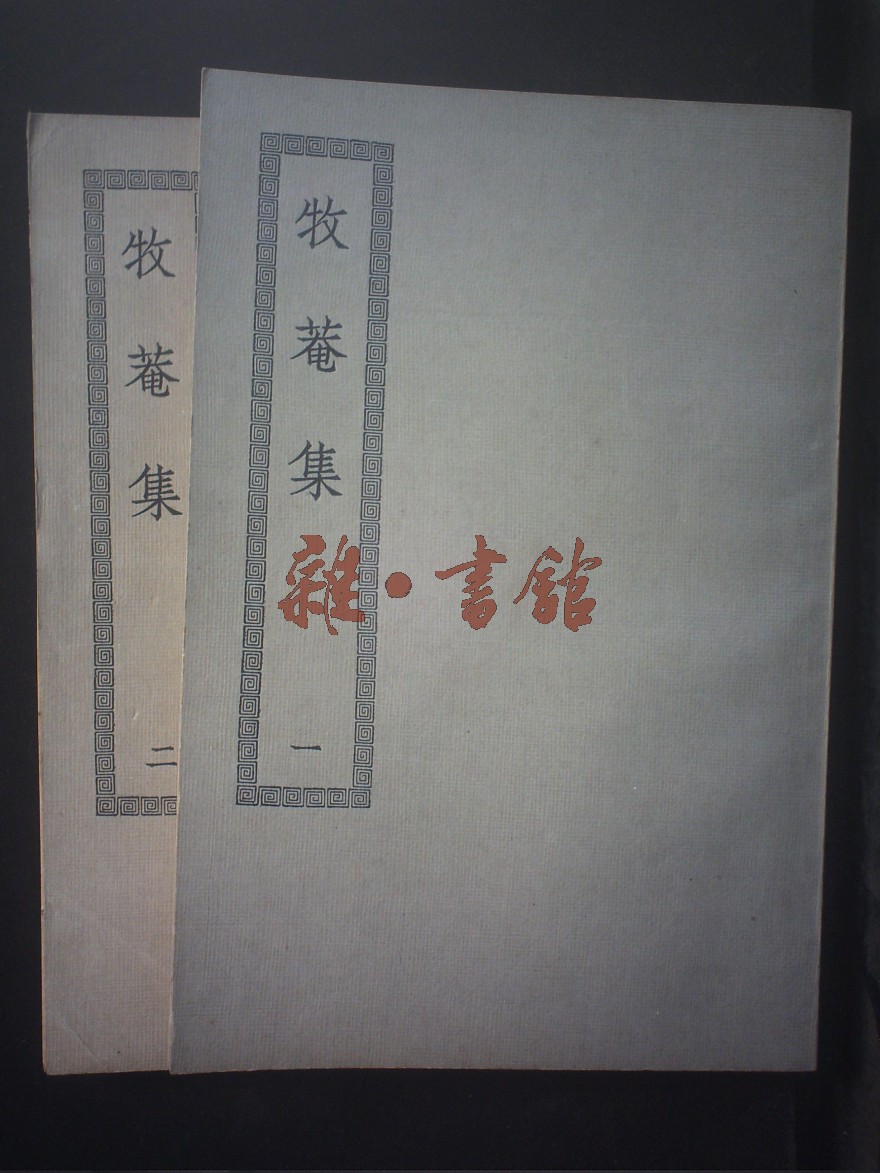 牧菴集
一
牧菴集
二
雜·書館